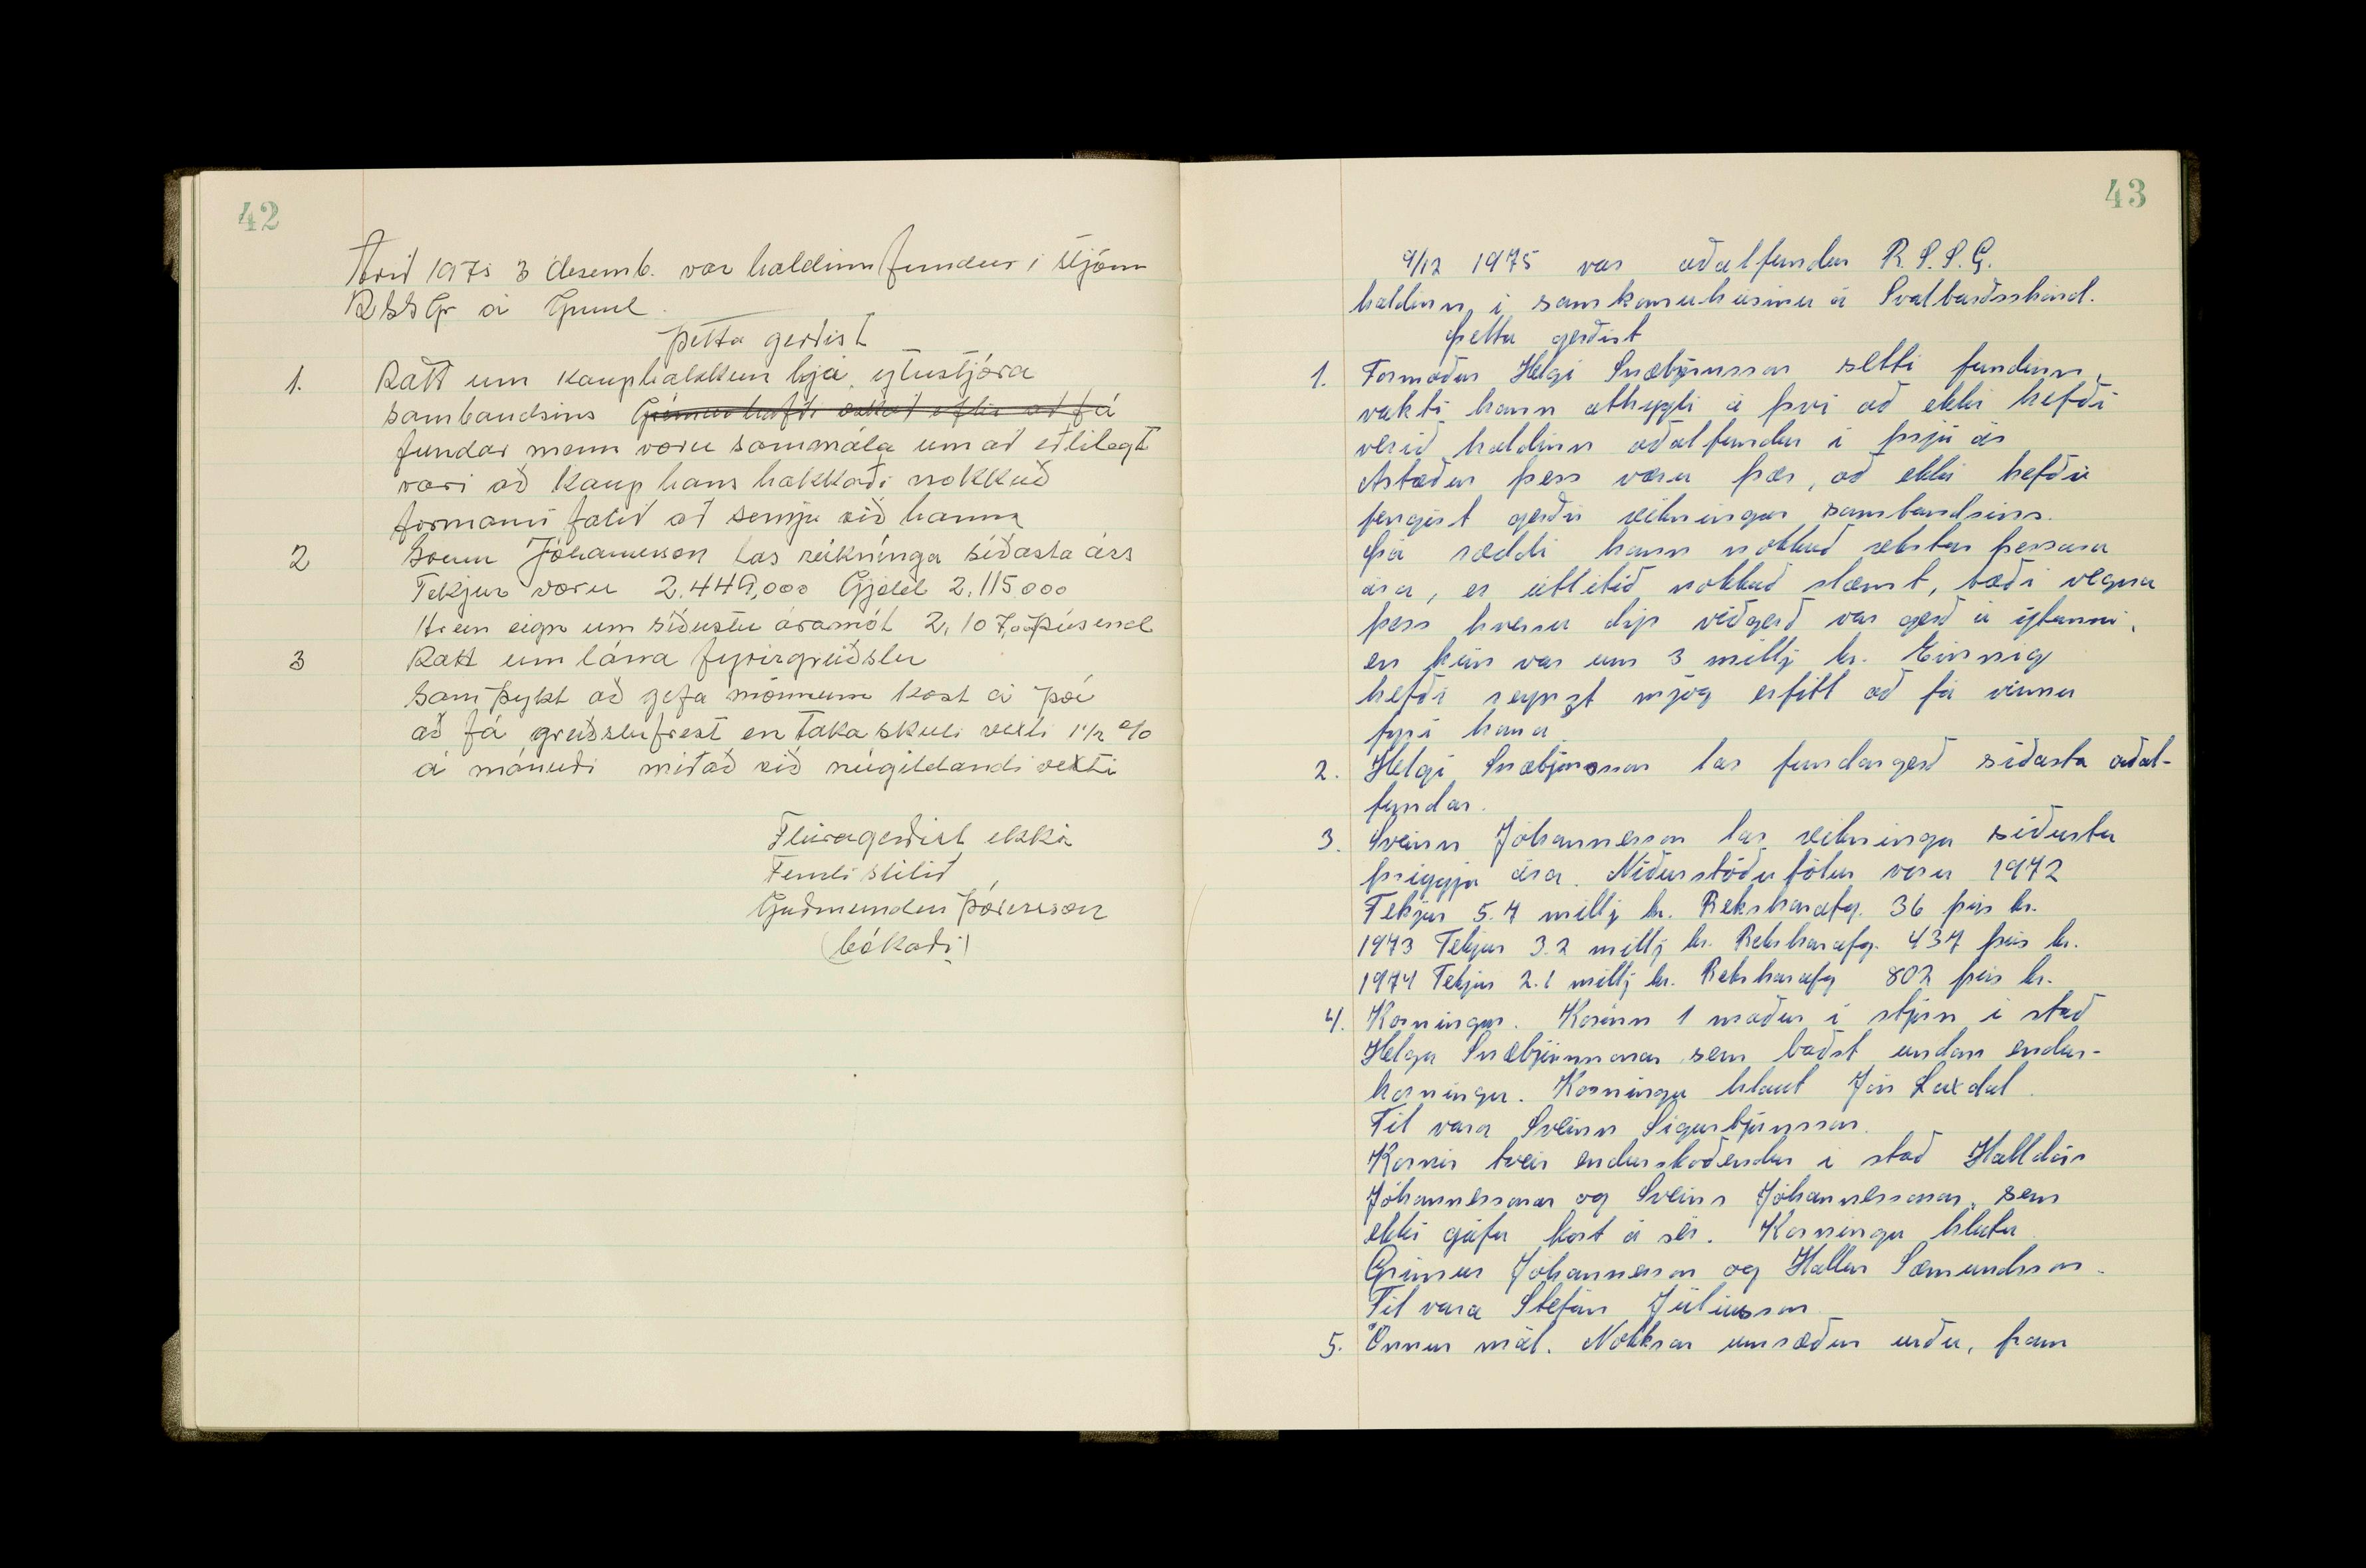 42
Árið 1975 3 desemb. var haldinn fundur í stjórn
RSSG á Grund
Þetta gerðist
1. Rætt um kauphækkun hjá ýtustjóra
sambandsins Grímur hafði óskað eftir að fá
fundar menn voru sammála um að eðlilegt
væri að kaup hans hækkaði nokkuð
formanni falið að semja við hann
2 Sveinn Jóhannesson las reikninga síðasta árs
Tekjur voru 2.449,000 Gjöld 2.115.000
Hrein eign um síðustu áramót 2,107,00 þúsend
3 Rætt um lána fyrirgreiðslu
Samþykt að gefa mönnum kost á því
að fá greiðslufrest en taka skuli vexti 1 1/2 %
á mánuði miðað við núgildandi vexti
Fleira gerðist ekki
Fundi slitið
Guðmundur Þórisson
(bókaði)
43
9/12 1975 var aðalfundur R.S.S.G.
haldinn í samkomuhúsinu á Svalbarðsströnd.
Þetta gerðist
1. Formaður Helgi Snæbjörnsson setti fundinn,
vakti hann athygli á því að ekki hefði
verið haldinn aðalfundur í þrjú ár
Ástæður þess væru þær, að ekki hefðu
fengist gerðir reikningar sambandsins.
Þá ræddi hann nokkuð rekstur þessara
ára, er útlitið nokkuð slæmt, bæði vegna
þess hversu dýr viðgerð var gerð á ýtunni,
en hún var um 3 millj kr. Einnig
hefði reynzt mjög erfitt að fá vinnu
fyri hana.
2. Helgi Snæbjörnsson las fundargerð síðasta aðal-
fundar.
3. Sveinn Jóhannesson las reikninga síðustu
þriggja ára. Niðurstöðu tölur voru 1972
Tekjur 5.4 millj kr. Rekstrarafg. 36 þús kr.
1973 Tekjur 3.2 millj kr. Rekstrarafg. 437 þús kr.
1974 Tekjur 2.1 millj kr. Rekstrarafg 802 þús kr.
4. Kosningar. Kosinn 1 maður í stjórn í stað
Helga Snæbjörnssonar sem baðst undan endur-
kosningu. Kosningu hlaut Jón Laxdal.
Til vara Sveinn Sigurbjörnsson.
Kosnir tveir endurskoðendur í stað Halldórs
Jóhannessonar og Sveins Jóhannessonar, sem
ekki gáfu kost á sér. Kosningu hlutu
Grímur Jóhannesson og Hallur Sæmundsson.
Til vara Stefán Júlíusson
5. Önnur mál. Nokkrar umræður urðu, fram